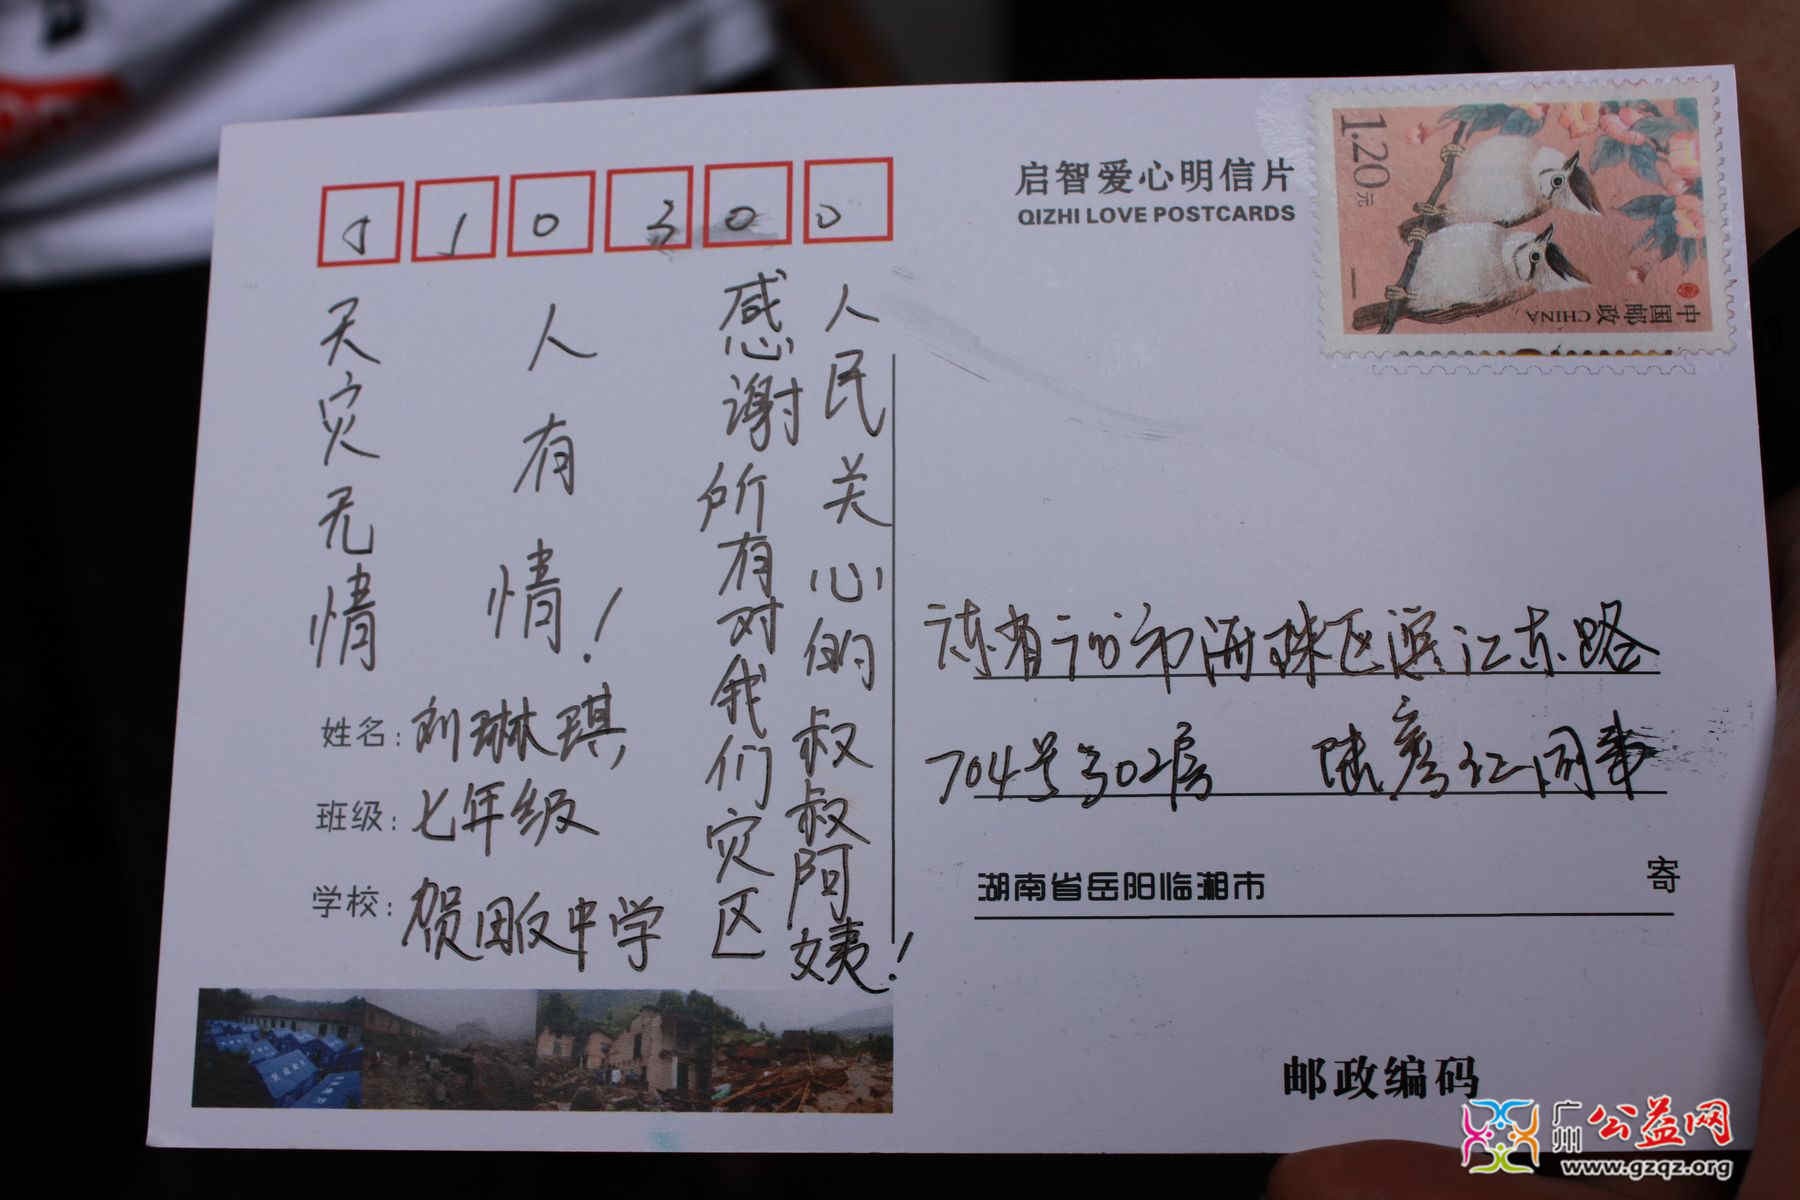 510300
启智爱心明信片
QIZHI LOVE POSTCARDS
1.20元
中国邮政 CHINA
天灾无情
人有情！
感谢所有对我们灾区
人民关心的叔叔阿姨！
姓名：刘琳琪
班级：七年级
学校：贺畈中学
东省 市海珠区滨江东路
704号302房 陆彦红同事
湖南省岳阳临湘市 寄
邮政编码
广州公益网
www.gzqz.org